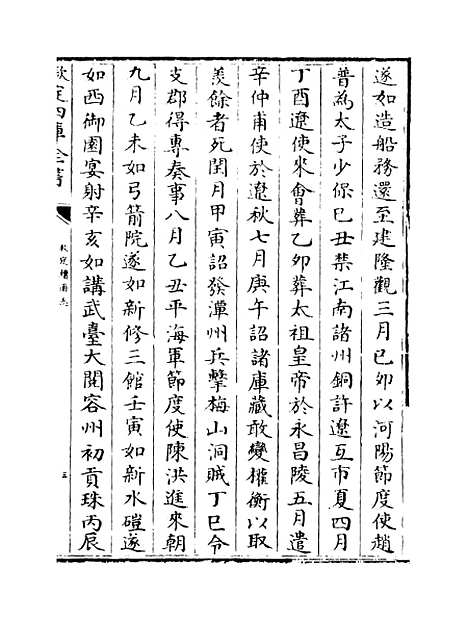 遂如造船務還至建隆觀三月已卯以河陽節度使趙
普為太子少保巳丑禁江南諸州銅許遼互市夏四月
丁酉遼使來會葬乙夘葬太祖皇帝於永昌陵五月遣
辛仲甫使於遼秋七月庚午詔諸庫藏敢變權衡以取
羨餘者死閏月甲寅詔發潭州兵擊梅山洞賊丁巳令
支郡得專奏事八月乙丑平海軍節度使陳洪進來朝
九月乙未如弓箭院遂如新修三館壬寅如新水磑遂
如西御園宴射辛亥如講武臺大閱容州初貢珠丙辰
欽定四庫全書
五